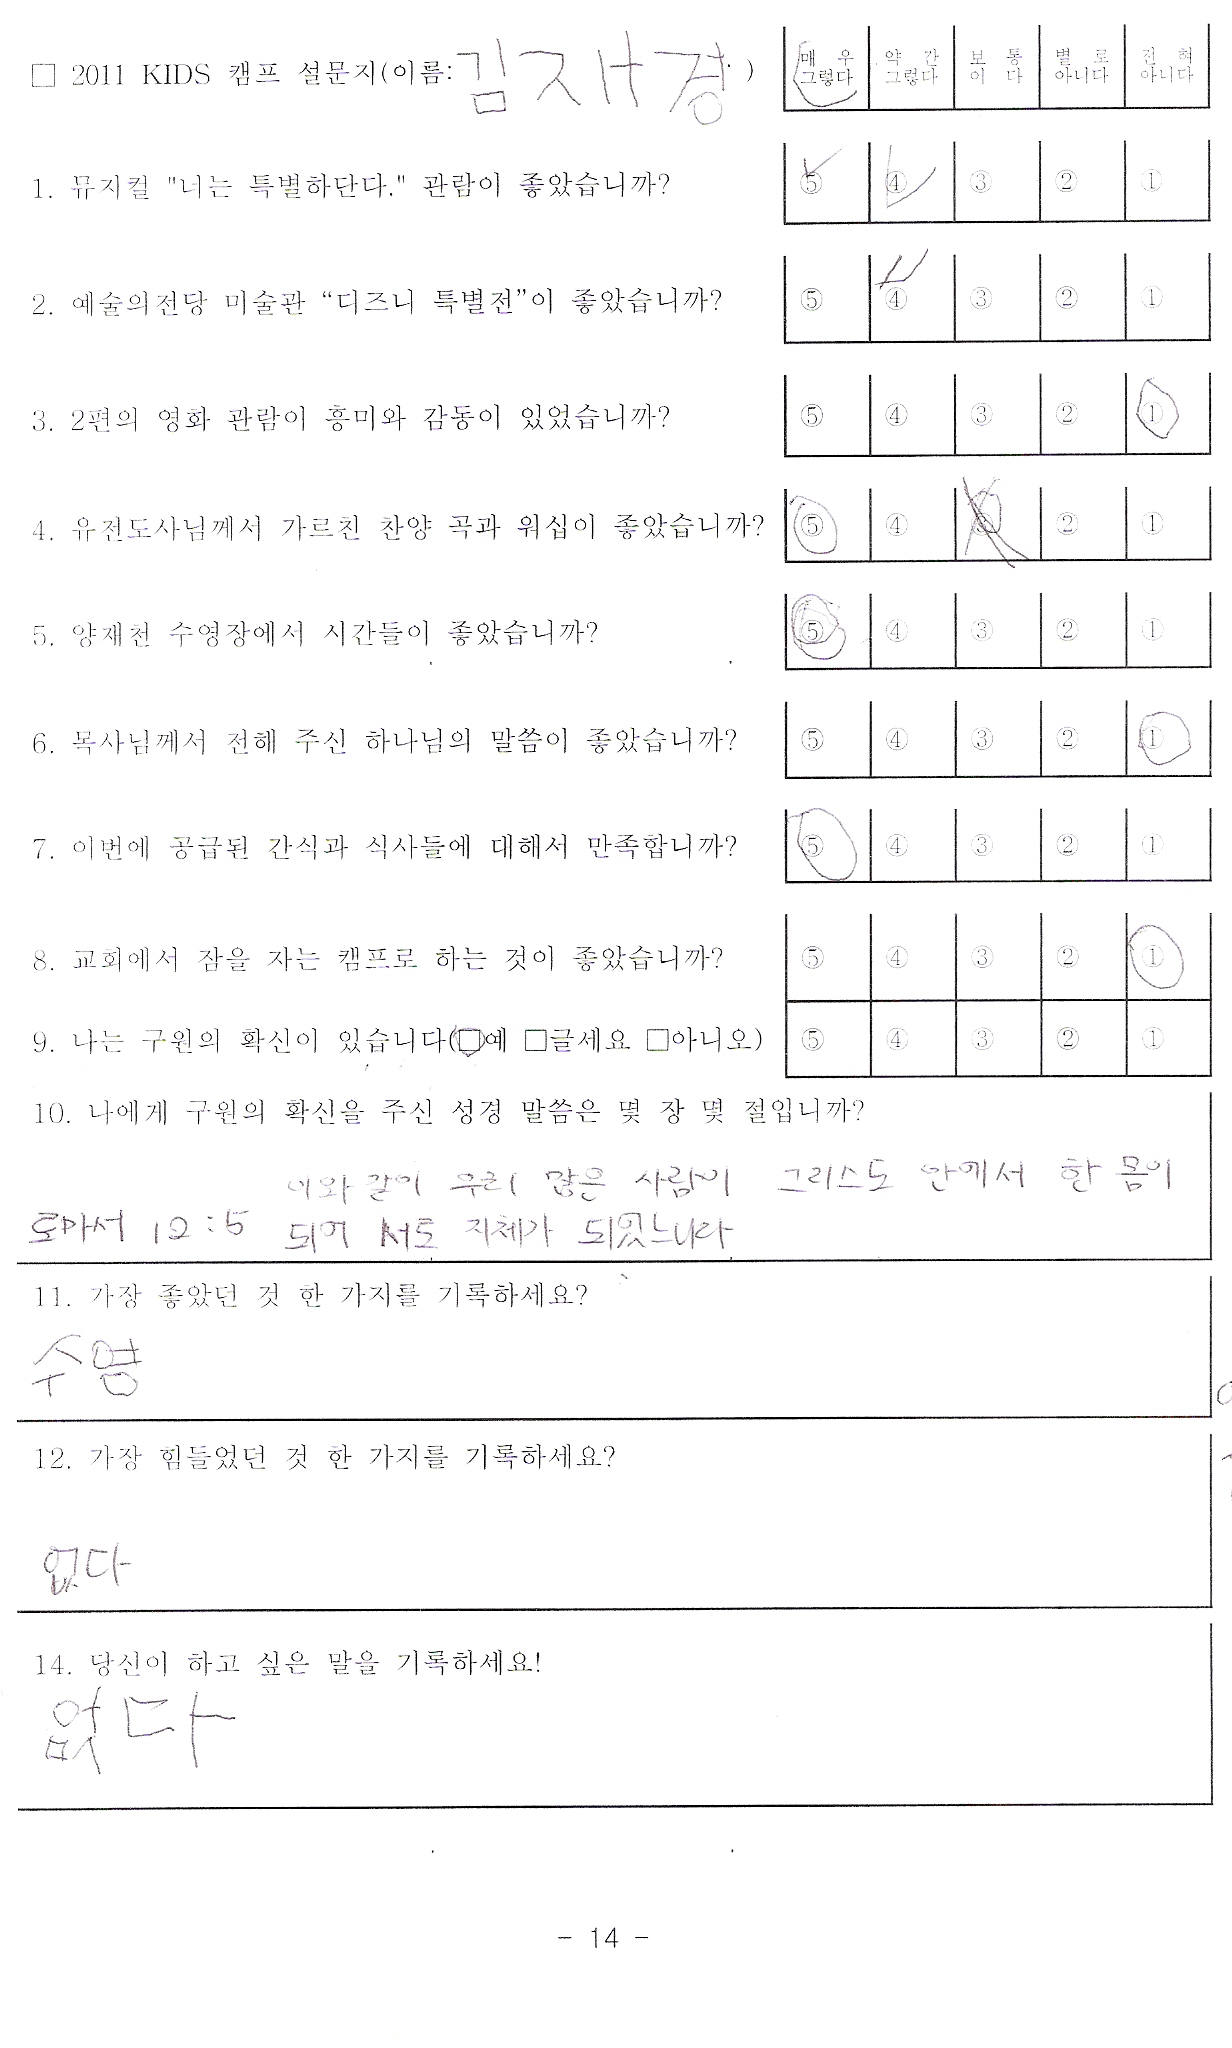 □ 2011 KIDS 캠프 설문지(이름: 김재경 )
매우 그렇다 약간 그렇다 보통이다 별로 아니다 전혀 아니다
1. 뮤지컬 "너는 특별하단다." 관람이 좋았습니까? ⑤ ④ ③ ② ①
2. 예술의전당 미술관 “디즈니 특별전”이 좋았습니까? ⑤ ④ ③ ② ①
3. 2편의 영화 관람이 흥미와 감동이 있었습니까? ⑤ ④ ③ ② ①
4. 유전도사님께서 가르친 찬양 곡과 워십이 좋았습니까? ⑤ ④ ③ ② ①
5. 양재천 수영장에서 시간들이 좋았습니까? ⑤ ④ ③ ② ①
6. 목사님께서 전해 주신 하나님의 말씀이 좋았습니까? ⑤ ④ ③ ② ①
7. 이번에 공급된 간식과 식사들에 대해서 만족합니까? ⑤ ④ ③ ② ①
8. 교회에서 잠을 자는 캠프로 하는 것이 좋았습니까? ⑤ ④ ③ ② ①
9. 나는 구원의 확신이 있습니다(□예 □글세요 □아니오) ⑤ ④ ③ ② ①
10. 나에게 구원의 확신을 주신 성경 말씀은 몇 장 몇 절입니까?
이와같이 우리 많은 사람이 그리스도 안에서 한 몸이
로마서 12:5 되어 서로 지체가 되었느니라
11. 가장 좋았던 것 한 가지를 기록하세요?
수영
12. 가장 힘들었던 것 한 가지를 기록하세요?
없다
14. 당신이 하고 싶은 말을 기록하세요!
없다
- 14 -